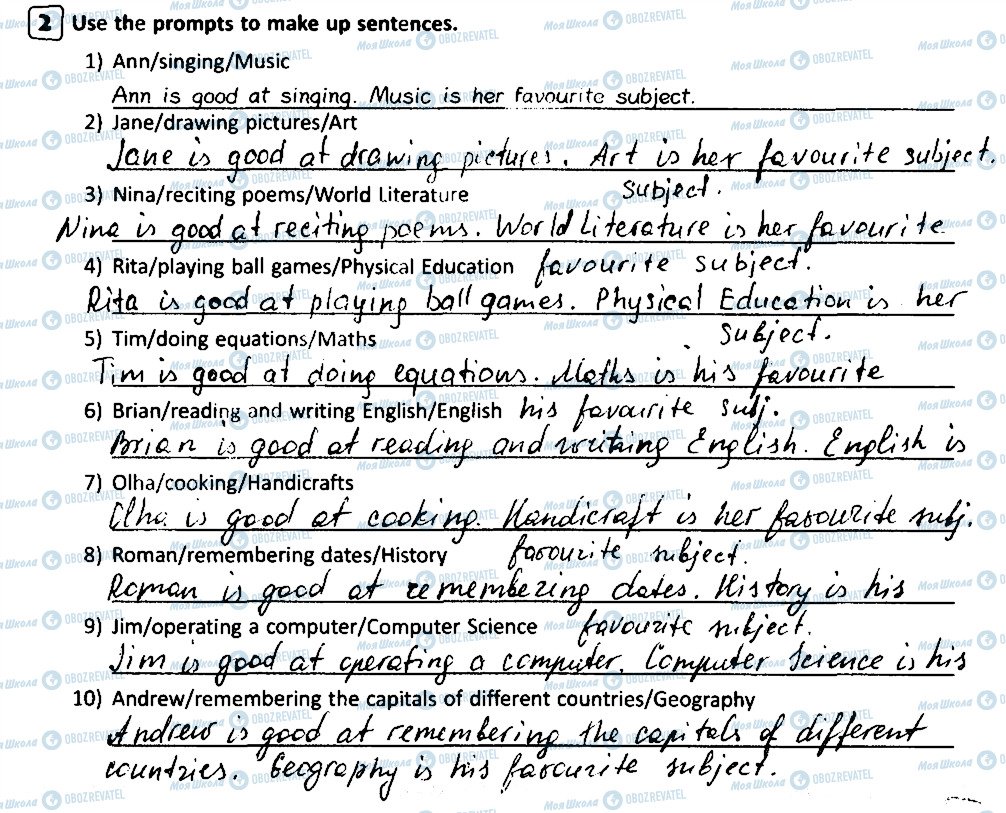 2 Use the prompts to make up sentences.
1) Ann/singing/Music
Ann is good at singing. Music is her favourite subject.
2) Jane/drawing pictures/Art
Jane is good at drawing pictures. Art is her favourite subject.
3) Nina/reciting poems/World Literature subject.
Nina is good at reciting poems. World Literature is her favourite
4) Rita/playing ball games/Physical Education favourite subject.
Rita is good at playing ball games. Physical Education is her
5) Tim/doing equations/Maths subject.
Tim is good at doing equations. Maths is his favourite
6) Brian/reading and writing English/English his favourite subj.
Brian is good at reading and writing English. English is
7) Olha/cooking/Handicrafts
Olha is good at cooking. Handicraft is her favourite subj.
8) Roman/remembering dates/History favourite subject.
Roman is good at remembering dates. History is his
9) Jim/operating a computer/Computer Science favourite subject.
Jim is good at operating a computer. Computer Science is his
10) Andrew/remembering the capitals of different countries/Geography
Andrew is good at remembering the capitals of different
countries. Geography is his favourite subject.
Моя Школа OBOZREVATEL